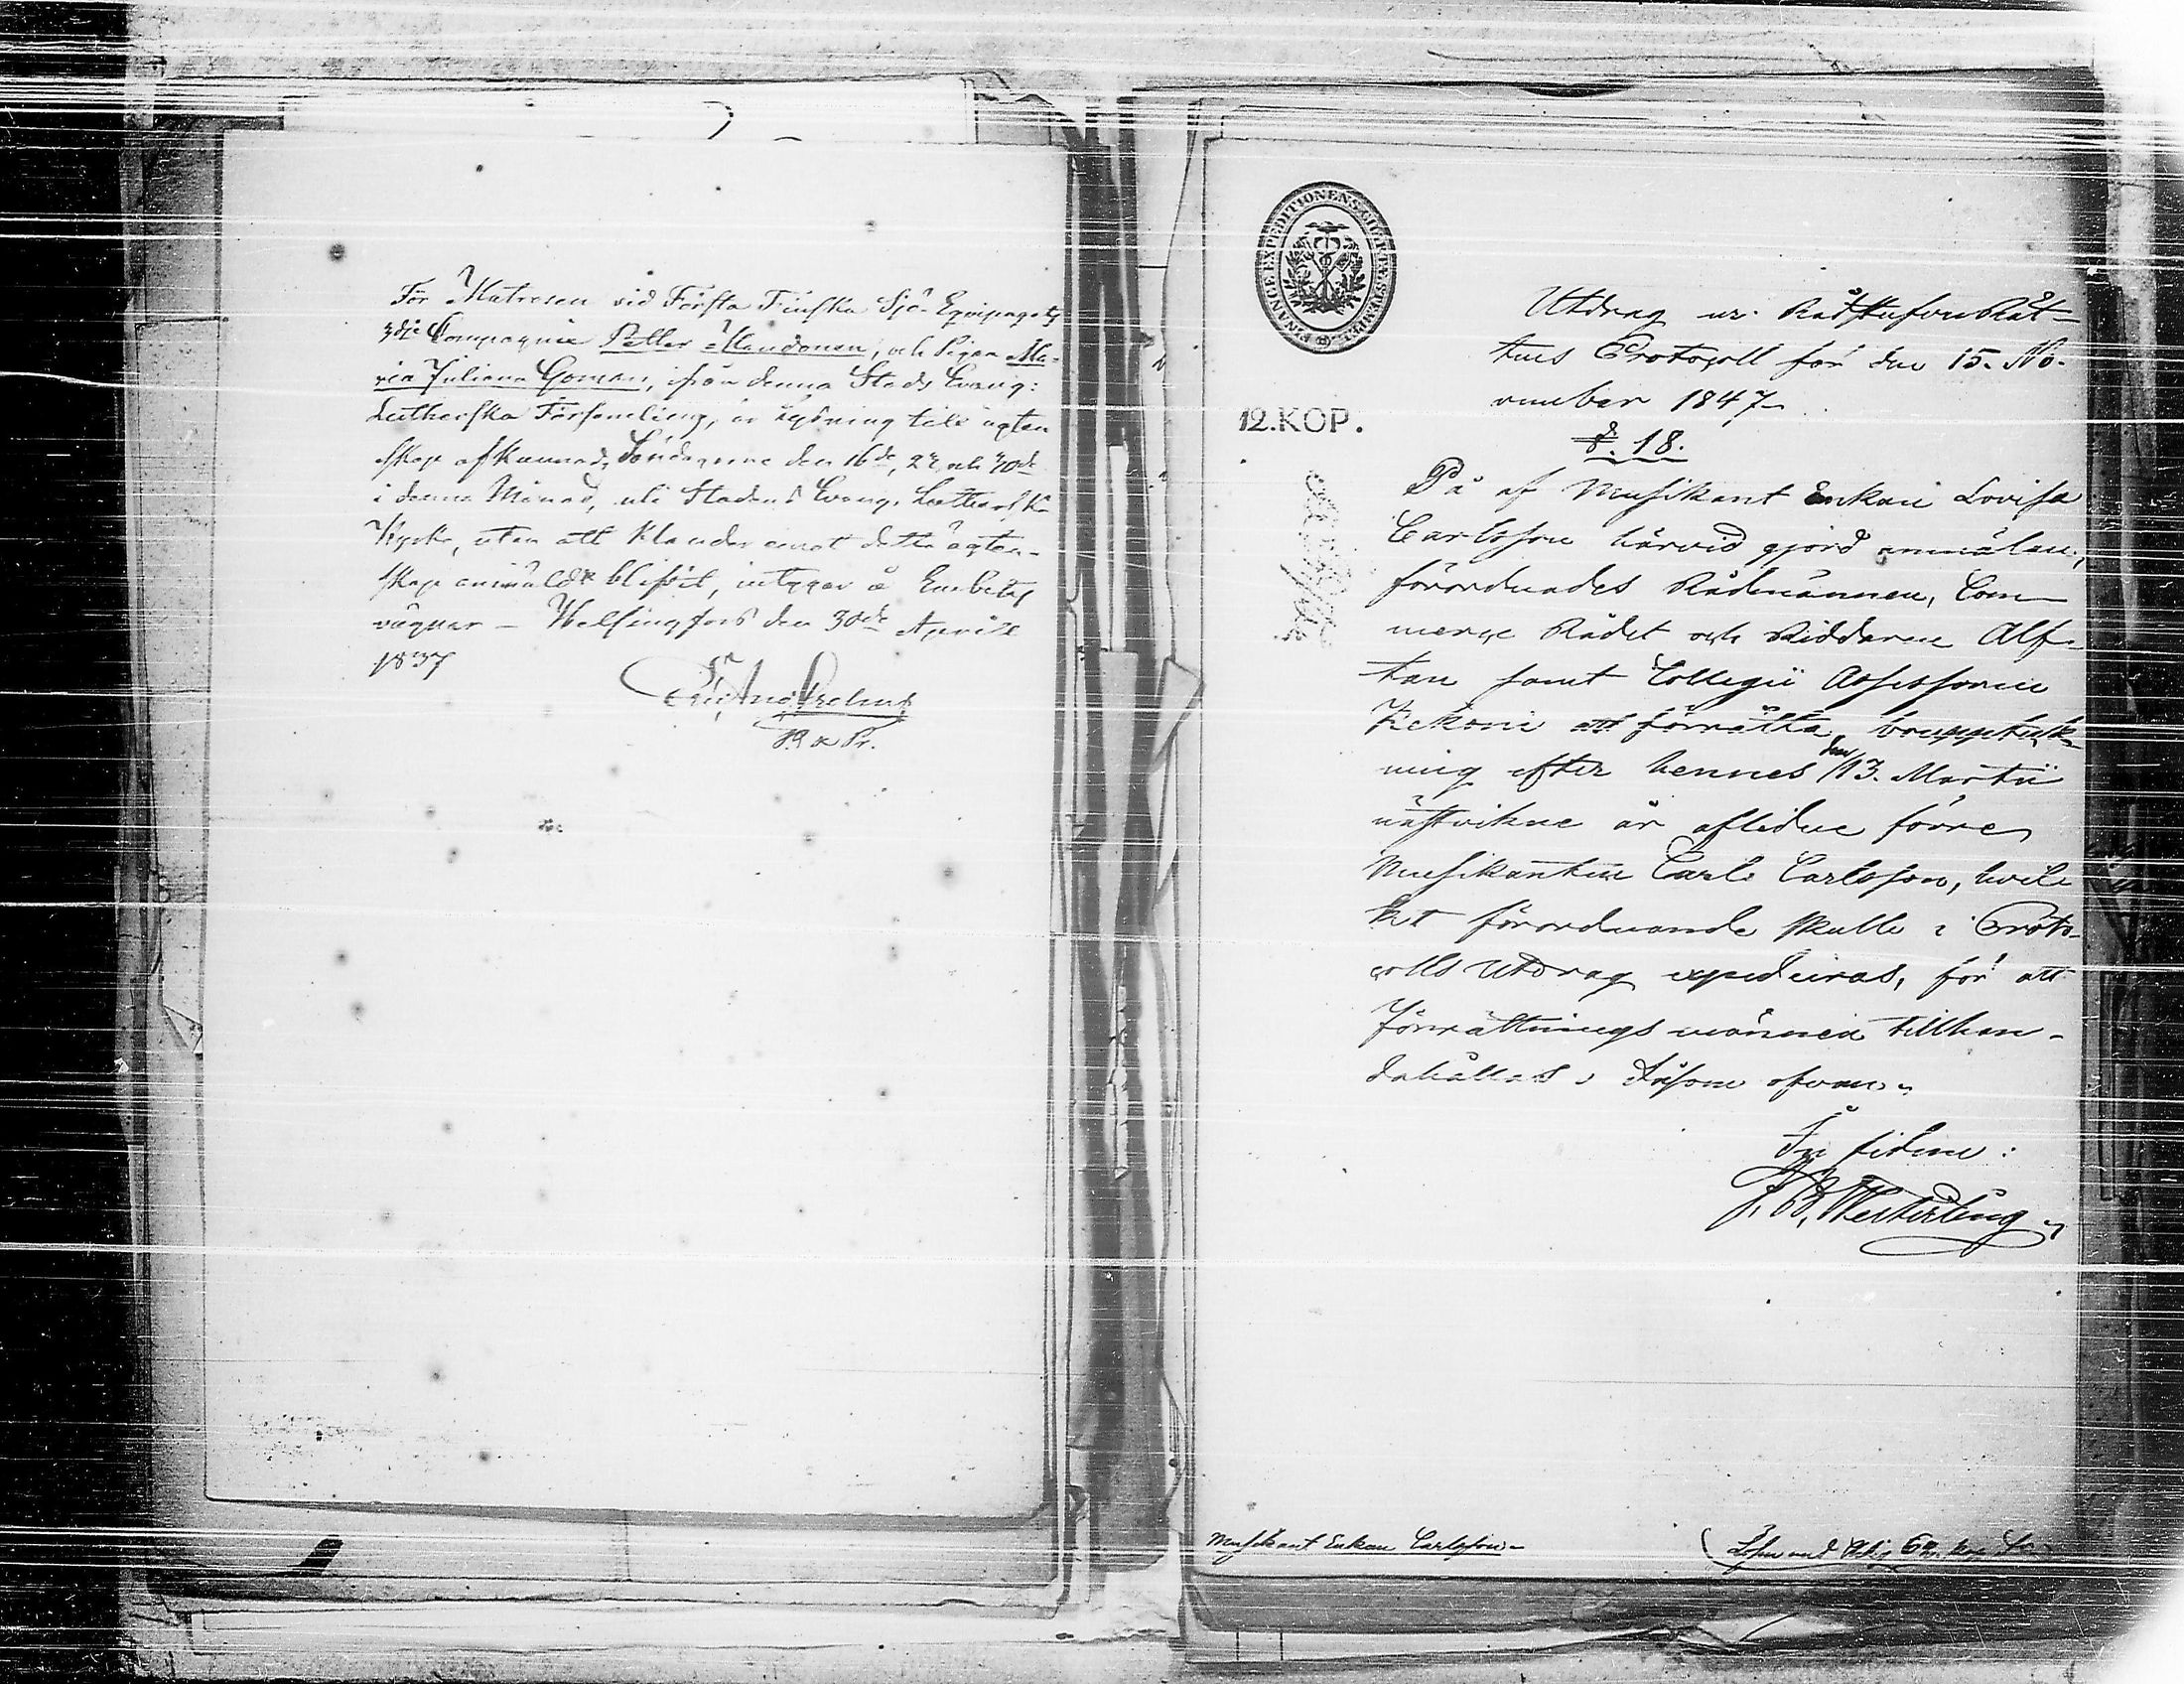 För Matrosen vid Första Finska Sjö-Equipagets
3dje Compagnie Petter Maudonen, och Pigan Ma-
ria Juliana Goman, ifrån denna Stads Evang:
Lutherska Församling, är lysning till ägten
skap afkunnad, Söndagarne den 16de, 23 och 30de
i denna Månad, uti Stadens Evang. Lutherska
Kyrka, utan att klander emot detta ägten-
skap anmäldt blifvit, intygar å Embetes
vägnar - Helsingfors den 30de April
1837

FINANCE EXPEDITIONENS
12.KOP.
Utdrag ur Rådstufvu Rät-
tens Protocoll för den 15. No-
vember 1847
§. 18.
På af Musikant Enkan Lovisa
Carlsson härvid gjord anmälan,
förordnades Rådmännen, Com-
merce Rådet och Riddaren Alf-
tan samt Collegii Assessoren
Kekoni att förrätta bouppteck-
ning efter hennes den 13. Martii
nästvikne år aflidne förre
Musikanten Carl Carlsson, hvil-
ket förordnande skulle i Proto-
colls Utdrag expedieras, för att
förrättningsmännen tillhan-
dahållas; Såsom ofvan.
In fidem:
J. W. Westerling
Musikant Enkan Carlsson
Lösen med